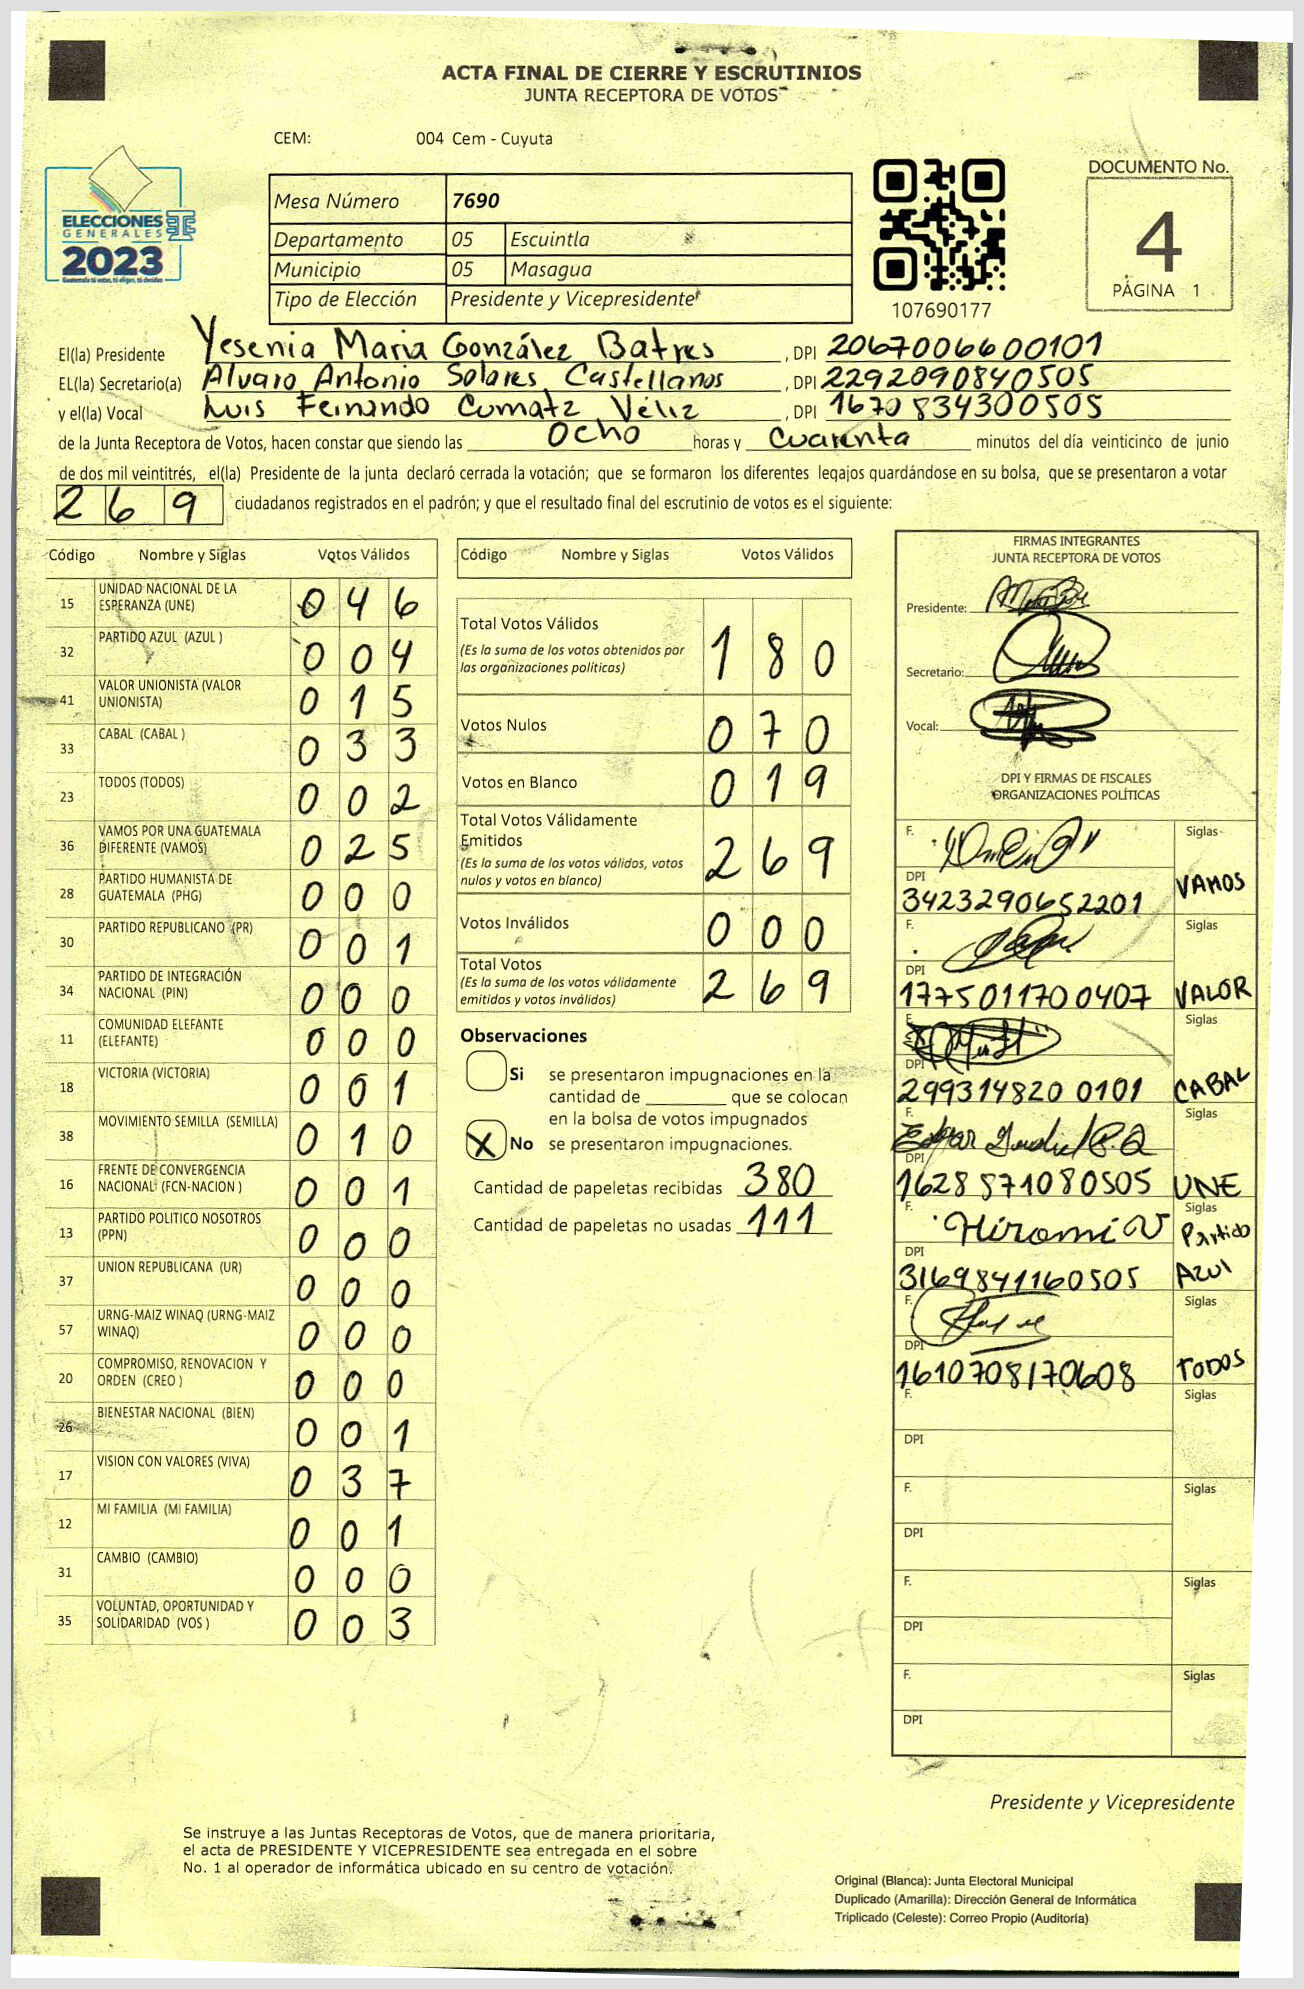 ACTA FINAL DE CIERRE Y ESCRUTINIOS
JUNTA RECEPTORA DE VOTOS
CEM: 004 Cem - Cuyuta
ELECCIONES
GENERALES
2023
Guatemala tú votas, tú eliges, tú decides
Mesa Número 7690
Departamento 05 Escuintla
Municipio 05 Masagua
Tipo de Elección Presidente y Vicepresidente
107690177
DOCUMENTO No.
4
PÁGINA 1
El(la) Presidente Yesenia Maria González Batres, DPI 2067006600101
EL(la) Secretario(a) Alvaro Antonio Solares Castellanos, DPI 2292090840505
y el(la) Vocal Luis Fernando Cumatz Véliz, DPI 1670834300505
de la Junta Receptora de Votos, hacen constar que siendo las Ocho horas y Cuarenta minutos del día veinticinco de junio
de dos mil veintitrés, el(la) Presidente de la junta declaró cerrada la votación; que se formaron los diferentes legajos guardándose en su bolsa, que se presentaron a votar
269 ciudadanos registrados en el padrón; y que el resultado final del escrutinio de votos es el siguiente:
Código Nombre y Siglas Votos Válidos
15 UNIDAD NACIONAL DE LA ESPERANZA (UNE) 046
32 PARTIDO AZUL (AZUL ) 004
41 VALOR UNIONISTA (VALOR UNIONISTA) 015
33 CABAL (CABAL ) 033
23 TODOS (TODOS) 002
36 VAMOS POR UNA GUATEMALA DIFERENTE (VAMOS) 025
28 PARTIDO HUMANISTA DE GUATEMALA (PHG) 000
30 PARTIDO REPUBLICANO (PR) 001
34 PARTIDO DE INTEGRACIÓN NACIONAL (PIN) 000
11 COMUNIDAD ELEFANTE (ELEFANTE) 000
18 VICTORIA (VICTORIA) 001
38 MOVIMIENTO SEMILLA (SEMILLA) 010
16 FRENTE DE CONVERGENCIA NACIONAL (FCN-NACION ) 001
13 PARTIDO POLITICO NOSOTROS (PPN) 000
37 UNION REPUBLICANA (UR) 000
57 URNG-MAIZ WINAQ (URNG-MAIZ WINAQ) 000
20 COMPROMISO, RENOVACION Y ORDEN (CREO ) 000
26 BIENESTAR NACIONAL (BIEN) 001
17 VISION CON VALORES (VIVA) 037
12 MI FAMILIA (MI FAMILIA) 001
31 CAMBIO (CAMBIO) 000
35 VOLUNTAD, OPORTUNIDAD Y SOLIDARIDAD (VOS ) 003
Código Nombre y Siglas Votos Válidos
Total Votos Válidos 180
(Es la suma de los votos obtenidos por
las organizaciones políticas)
Votos Nulos 070
Votos en Blanco 019
Total Votos Válidamente
Emitidos 269
(Es la suma de los votos válidos, votos
nulos y votos en blanco)
Votos Inválidos 000
Total Votos 269
(Es la suma de los votos válidamente
emitidos y votos inválidos)
Observaciones
Si se presentaron impugnaciones en la
cantidad de ________ que se colocan
en la bolsa de votos impugnados
X No se presentaron impugnaciones.
Cantidad de papeletas recibidas 380
Cantidad de papeletas no usadas 111
FIRMAS INTEGRANTES
JUNTA RECEPTORA DE VOTOS
Presidente:
Secretario:
Vocal:
DPI Y FIRMAS DE FISCALES
ORGANIZACIONES POLÍTICAS
F. Siglas
DPI 3423290652201 VAMOS
F. Siglas
DPI 1775011700407 VALOR
F. Siglas
DPI 299314820 0101 CABAL
F. Siglas
Edgar
DPI 1628571080505 UNE
F. Hiromi V Siglas
DPI 3169841160505 Partido Azul
F. Siglas
DPI 1610708170608 TODOS
F. Siglas
DPI
F. Siglas
DPI
F. Siglas
DPI
F. Siglas
DPI
Presidente y Vicepresidente
Se instruye a las Juntas Receptoras de Votos, que de manera prioritaria,
el acta de PRESIDENTE Y VICEPRESIDENTE sea entregada en el sobre
No. 1 al operador de informática ubicado en su centro de votación.
Original (Blanca): Junta Electoral Municipal
Duplicado (Amarilla): Dirección General de Informática
Triplicado (Celeste): Correo Propio (Auditoría)